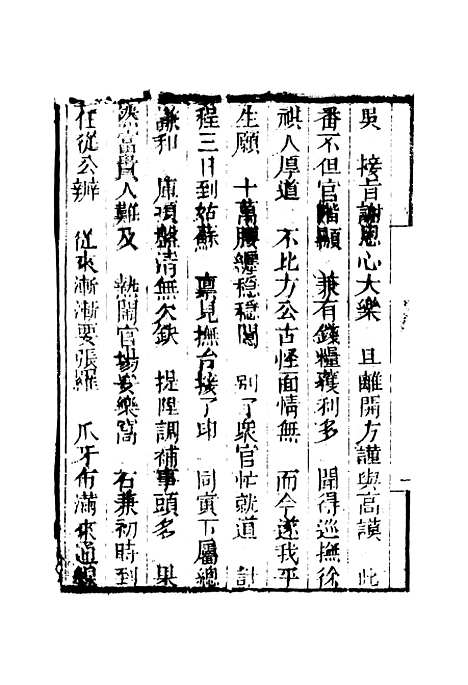 吳 接旨謝恩心大樂 且離開方謹與高謨 此
番不但官階顯 兼有錢糧獲利多 聞得巡撫徐
祺人厚道 不比方公古怪面情無 而今遂我平
生願 十萬腰纏穩穩閣 別了衆官忙就道 計
程三日到姑蘇 稟見撫台接了印 同寅下屬總
謙和 庫項盤清無欠缺 提陞調補事頭多 果
然富貴人難及 熱鬧官場安樂窩 右兼初時到
任從公辦 從來漸漸要張羅 爪牙布滿來通線